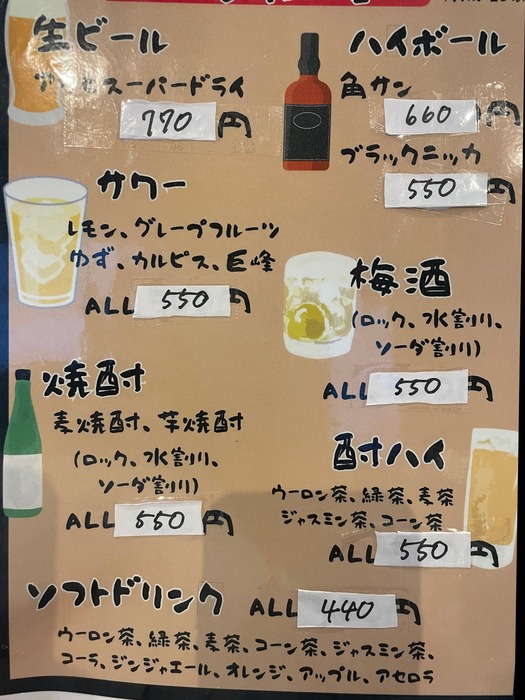 生ビール
スーパードライ
770円
ハイボール
角サン
660円
ブラックニッカ
550円
サワー
レモン、グレープフルーツ
ゆず、カルピス、巨峰
ALL 550円
梅酒
(ロック、水割り、
ソーダ割り)
ALL 550円
焼酎
麦焼酎、芋焼酎
(ロック、水割り、
ソーダ割り)
ALL 550円
酎ハイ
ウーロン茶、緑茶、麦茶
ジャスミン茶、コーン茶
ALL 550円
ソフトドリンク ALL 440円
ウーロン茶、緑茶、麦茶、コーン茶、ジャスミン茶、
コーラ、ジンジャエール、オレンジ、アップル、アセロラ